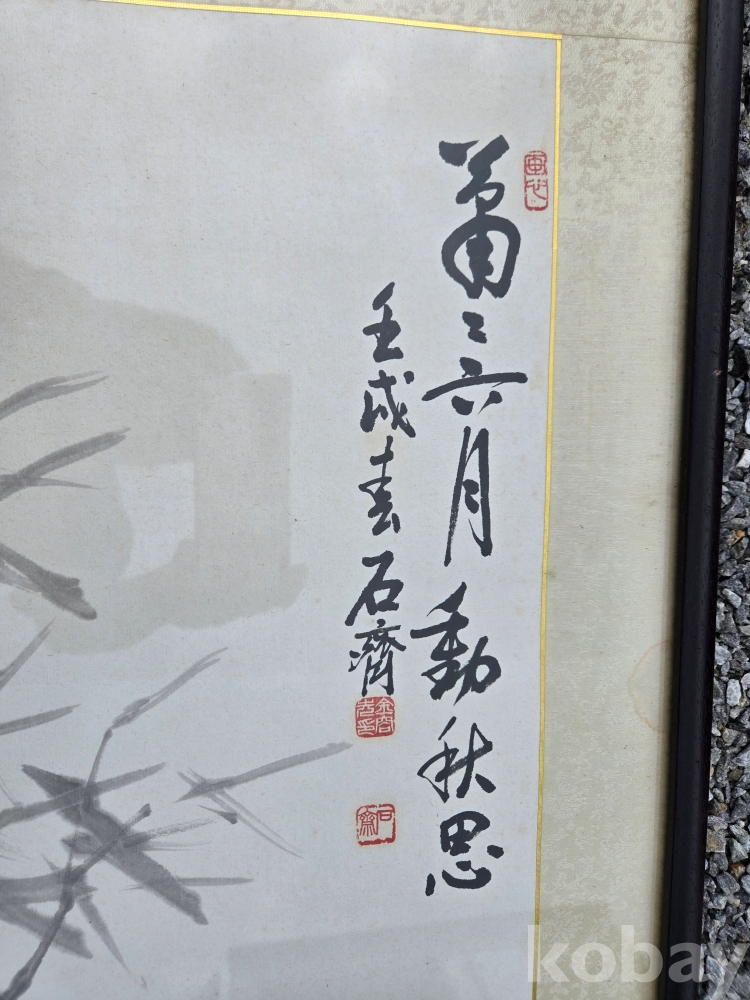 蕭〻六月動秋思
壬戌春石齋
kobay